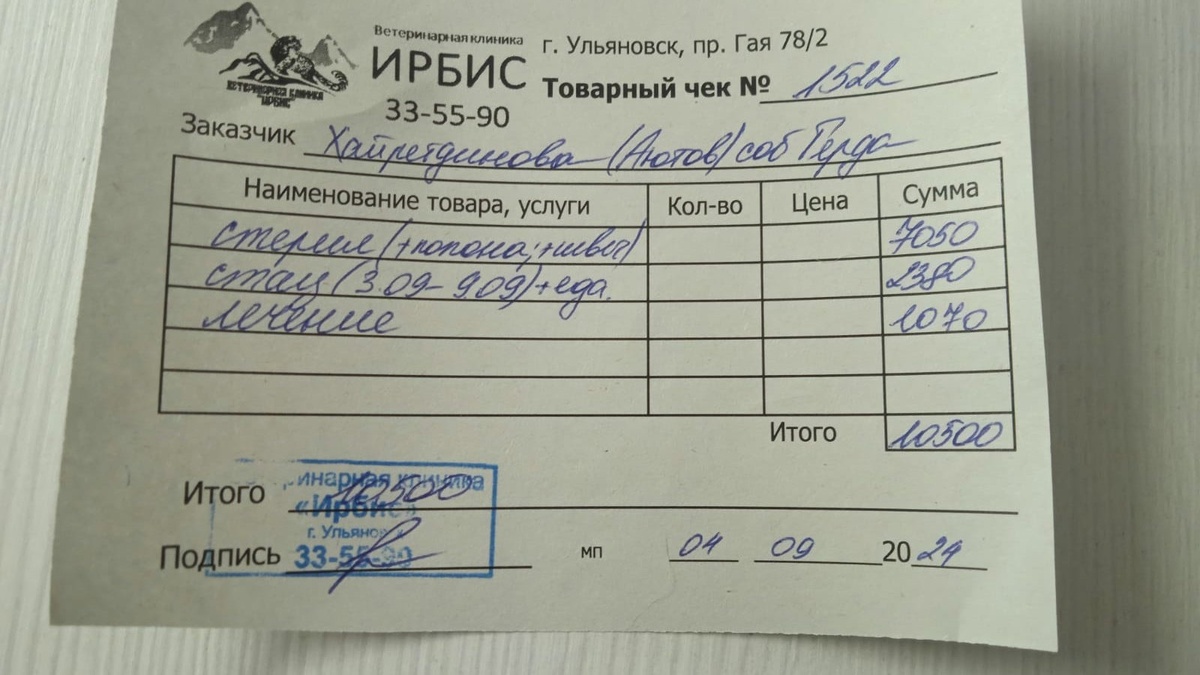 Ветеринарная клиника
ИРБИС
33-55-90
ВЕТЕРИНАРНАЯ КЛИНИКА
"ИРБИС"
г. Ульяновск, пр. Гая 78/2
Товарный чек № 1522
Заказчик Хайретдинова (Аютов) соб Герда
Наименование товара, услуги Кол-во Цена Сумма
стерил (+попона; +инвег) 7050
стац (3.09-9.09)+еда. 2380
лечение 1070
Итого 10500
Итого 10500
инарная клиника
«Ирбис»
г. Ульянов
33-55-90
Подпись мп 04 09 2024